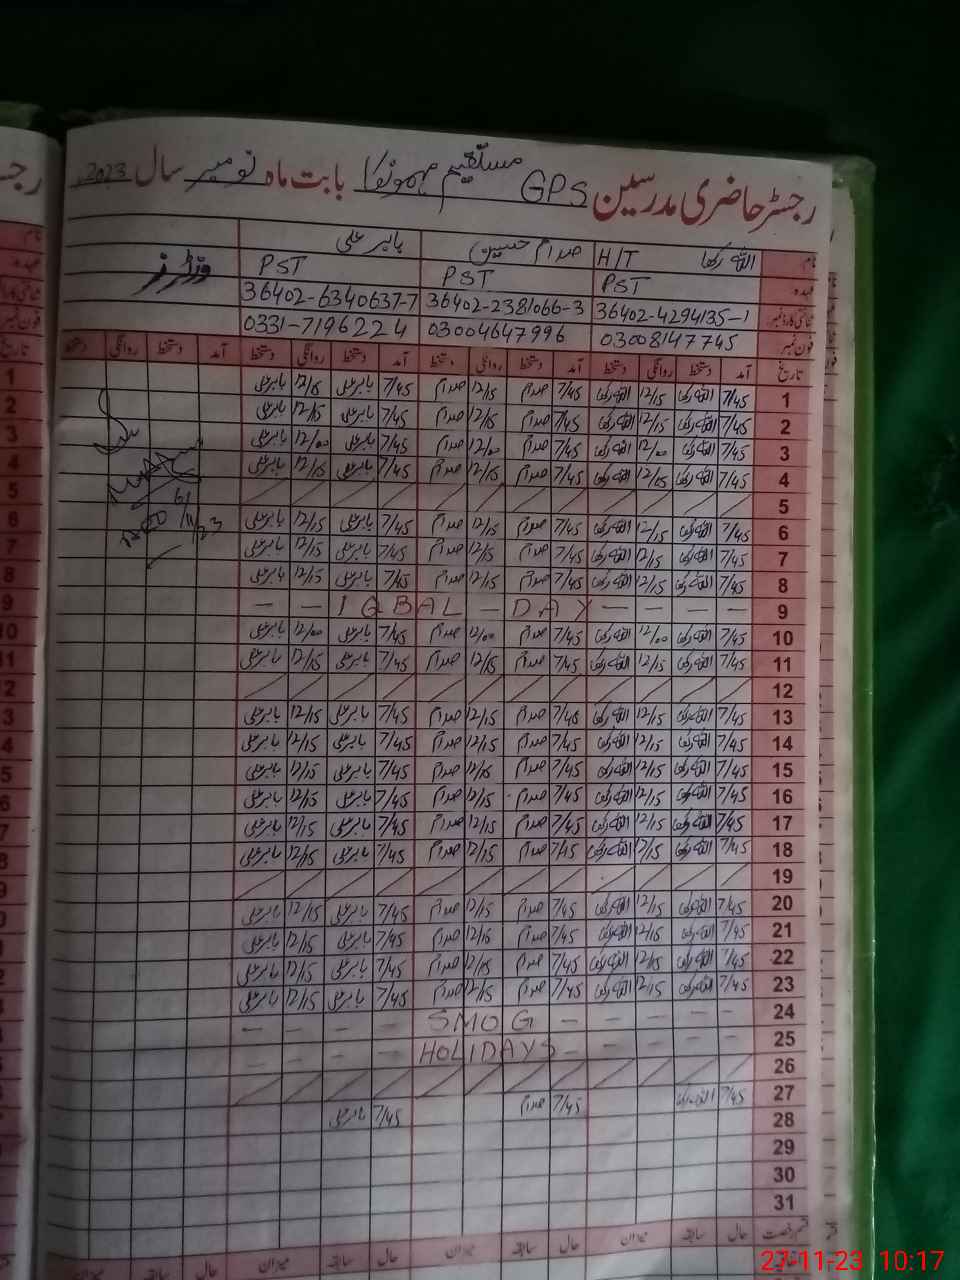 رجسٹر حاضری مدرسین GPS مستقیم مہمونوکا بابت ماہ نومبر سال 2023
نام اللہ رکھا H/T صدام حسین بابر علی
عہدہ PST PST PST وزٹرز
شناختی کارڈ نمبر 36402-4294135-1 36402-2381066-3 36402-6340637-7
فون نمبر 03008147745 03004647996 0331-7196224
تاریخ آمد دستخط روانگی دستخط آمد دستخط روانگی دستخط آمد دستخط روانگی دستخط آمد دستخط روانگی دستخط
1 7/45 اللہ رکھا 12/15 اللہ رکھا 7/45 صدام 12/15 صدام 7/45 بابر علی 12/15 بابر علی
2 7/45 اللہ رکھا 12/15 اللہ رکھا 7/45 صدام 12/15 صدام 7/45 بابر علی 12/15 بابر علی
3 7/45 اللہ رکھا 12/00 اللہ رکھا 7/45 صدام 12/00 صدام 7/45 بابر علی 12/00 بابر علی
4 7/45 اللہ رکھا 12/15 اللہ رکھا 7/45 صدام 12/15 صدام 7/45 بابر علی 12/15 بابر علی
5
6 7/45 اللہ رکھا 12/15 اللہ رکھا 7/45 صدام 12/15 صدام 7/45 بابر علی 12/15 بابر علی
7 7/45 اللہ رکھا 12/15 اللہ رکھا 7/45 صدام 12/15 صدام 7/45 بابر علی 12/15 بابر علی
8 7/45 اللہ رکھا 12/15 اللہ رکھا 7/45 صدام 12/15 صدام 7/45 بابر علی 12/15 بابر علی
9 — — IQBAL — DAY — — — —
10 7/45 اللہ رکھا 12/00 اللہ رکھا 7/45 صدام 12/00 صدام 7/45 بابر علی 12/00 بابر علی
11 7/45 اللہ رکھا 12/15 اللہ رکھا 7/45 صدام 12/15 صدام 7/45 بابر علی 12/15 بابر علی
12
13 7/45 اللہ رکھا 12/15 اللہ رکھا 7/45 صدام 12/15 صدام 7/45 بابر علی 12/15 بابر علی
14 7/45 اللہ رکھا 12/15 اللہ رکھا 7/45 صدام 12/15 صدام 7/45 بابر علی 12/15 بابر علی
15 7/45 اللہ رکھا 12/15 اللہ رکھا 7/45 صدام 12/15 صدام 7/45 بابر علی 12/15 بابر علی
16 7/45 اللہ رکھا 12/15 اللہ رکھا 7/45 صدام 12/15 صدام 7/45 بابر علی 12/15 بابر علی
17 7/45 اللہ رکھا 12/15 اللہ رکھا 7/45 صدام 12/15 صدام 7/45 بابر علی 12/15 بابر علی
18 7/45 اللہ رکھا 12/15 اللہ رکھا 7/45 صدام 12/15 صدام 7/45 بابر علی 12/15 بابر علی
19
20 7/45 اللہ رکھا 12/15 اللہ رکھا 7/45 صدام 12/15 صدام 7/45 بابر علی 12/15 بابر علی
21 7/45 اللہ رکھا 12/15 اللہ رکھا 7/45 صدام 12/15 صدام 7/45 بابر علی 12/15 بابر علی
22 7/45 اللہ رکھا 12/15 اللہ رکھا 7/45 صدام 12/15 صدام 7/45 بابر علی 12/15 بابر علی
23 7/45 اللہ رکھا 12/15 اللہ رکھا 7/45 صدام 12/15 صدام 7/45 بابر علی 12/15 بابر علی
24 — — — — SMOG — — — — —
25 — — — — HOLIDAYS — — — —
26
27 7/45 اللہ رکھا 7/45 صدام 7/45 بابر علی
28
29
30
31
قسم رخصت حال سابقہ میزان حال سابقہ میزان حال سابقہ میزان حال سابقہ میزان
27-11-23 10:17